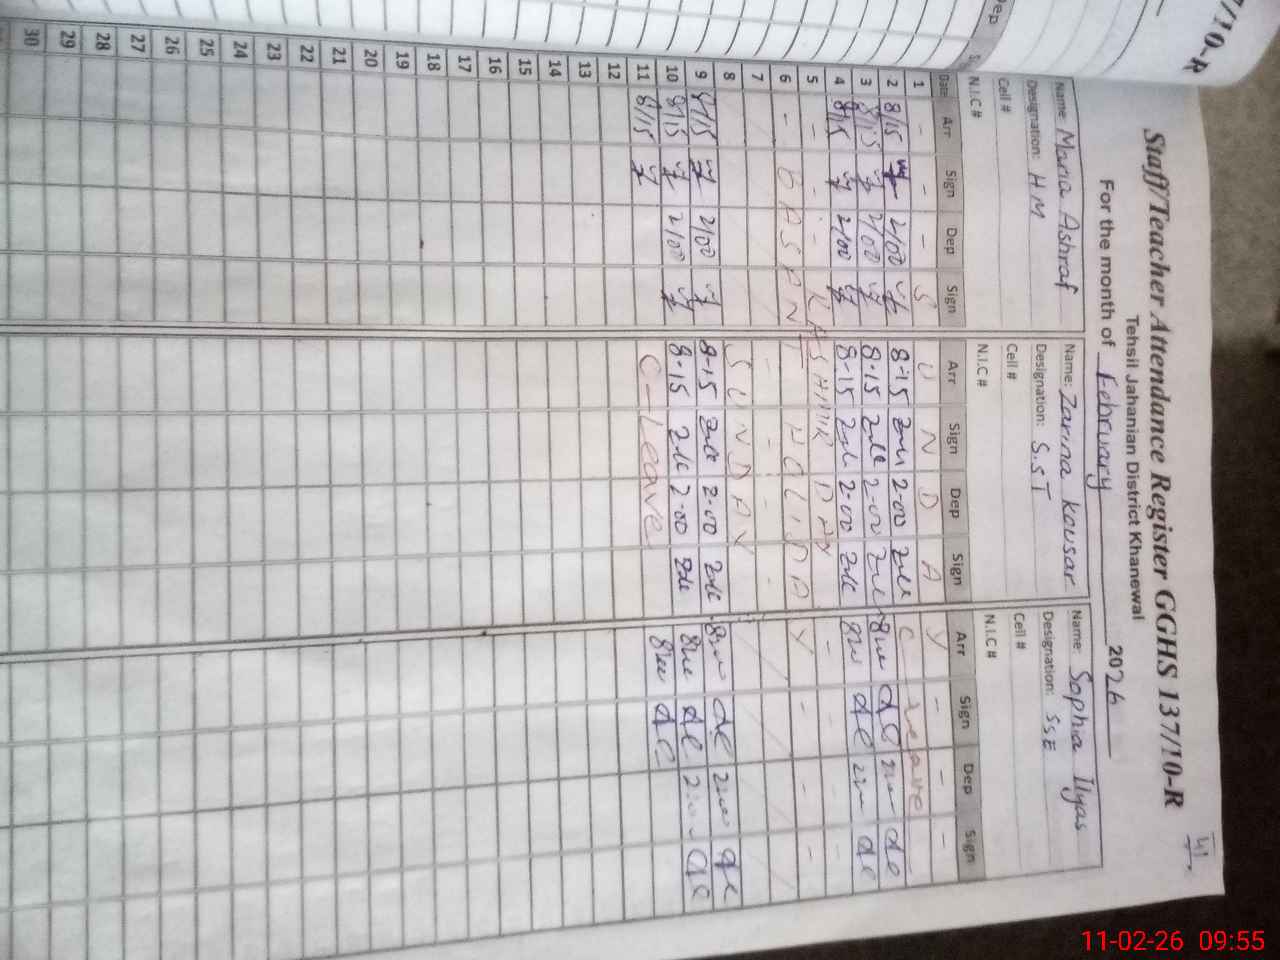 7/10-R
Dep
41
Staff/Teacher Attendance Register GGHS 137/10-R
Tehsil Jahanian District Khanewal
For the month of February 2026
Name: Maria Ashraf Name: Zarina Kousar Name: Sophia Ilyas
Designation: HM Designation: S.ST Designation: SSE
Cell # Cell # Cell #
N.I.C # N.I.C # N.I.C #
Date Arr Sign Dep Sign Arr Sign Dep Sign Arr Sign Dep Sign
1 - - - S U N D A Y - - -
2 8/15 2/00 8:15 2-00 C Leave
3 8/15 2/00 8-15 2-00
4 8/15 2/00 8-15 2-00
5 - - - KASHMIR DAY - - -
6 - BASANT HOLIDAY - - -
7
8 SUNDAY
9 8/15 2/00 8-15 2-00
10 8/15 2/00 8-15 2-00
11 8/15 C-Leave
12
13
14
15
16
17
18
19
20
21
22
23
24
25
26
27
28
29
30
11-02-26 09:55